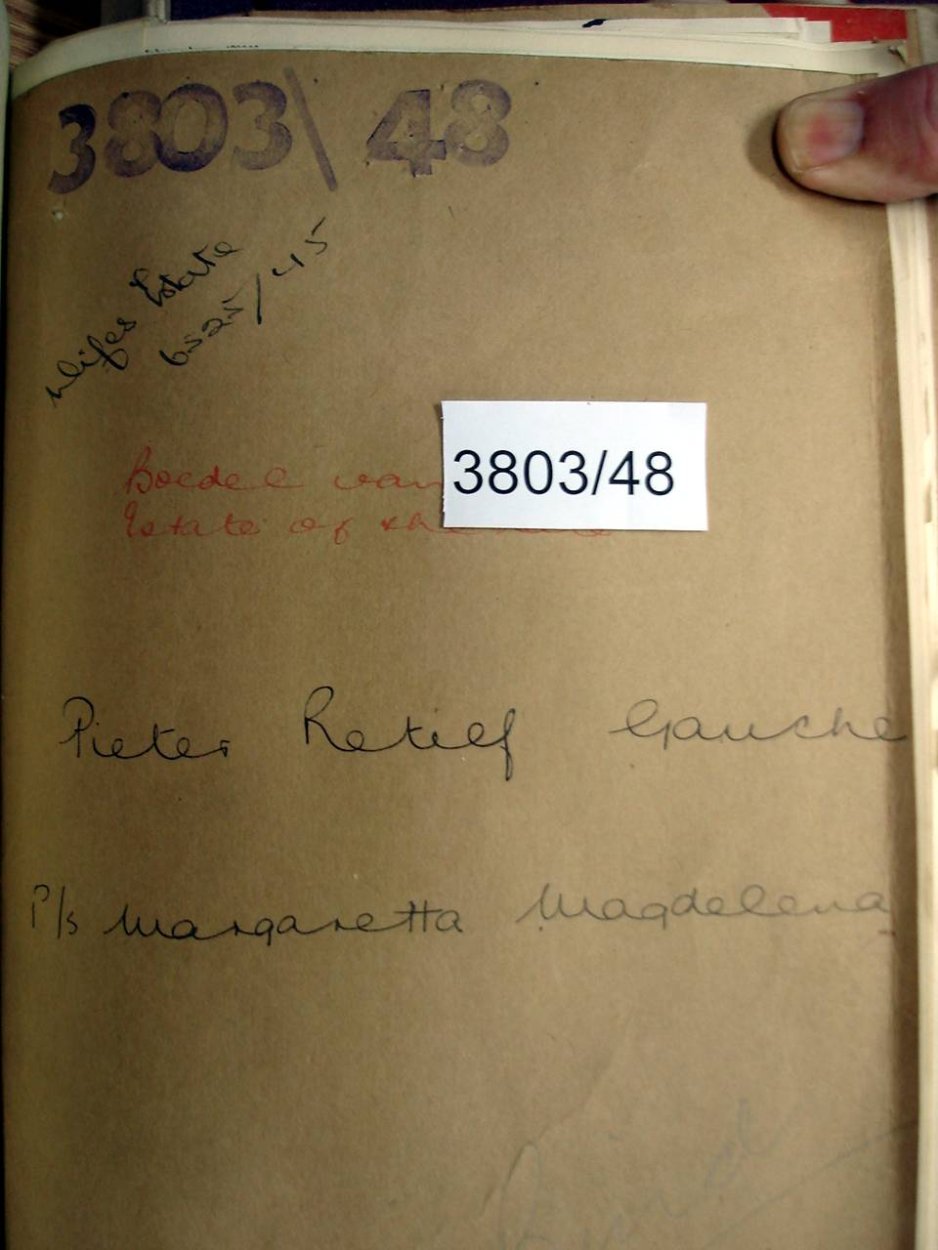 3803\48
Wifes Estate
6525/45
3803/48
Boedel van
Estate of the
Pieter Retief Gauche
P/s Margaretta Magdelena